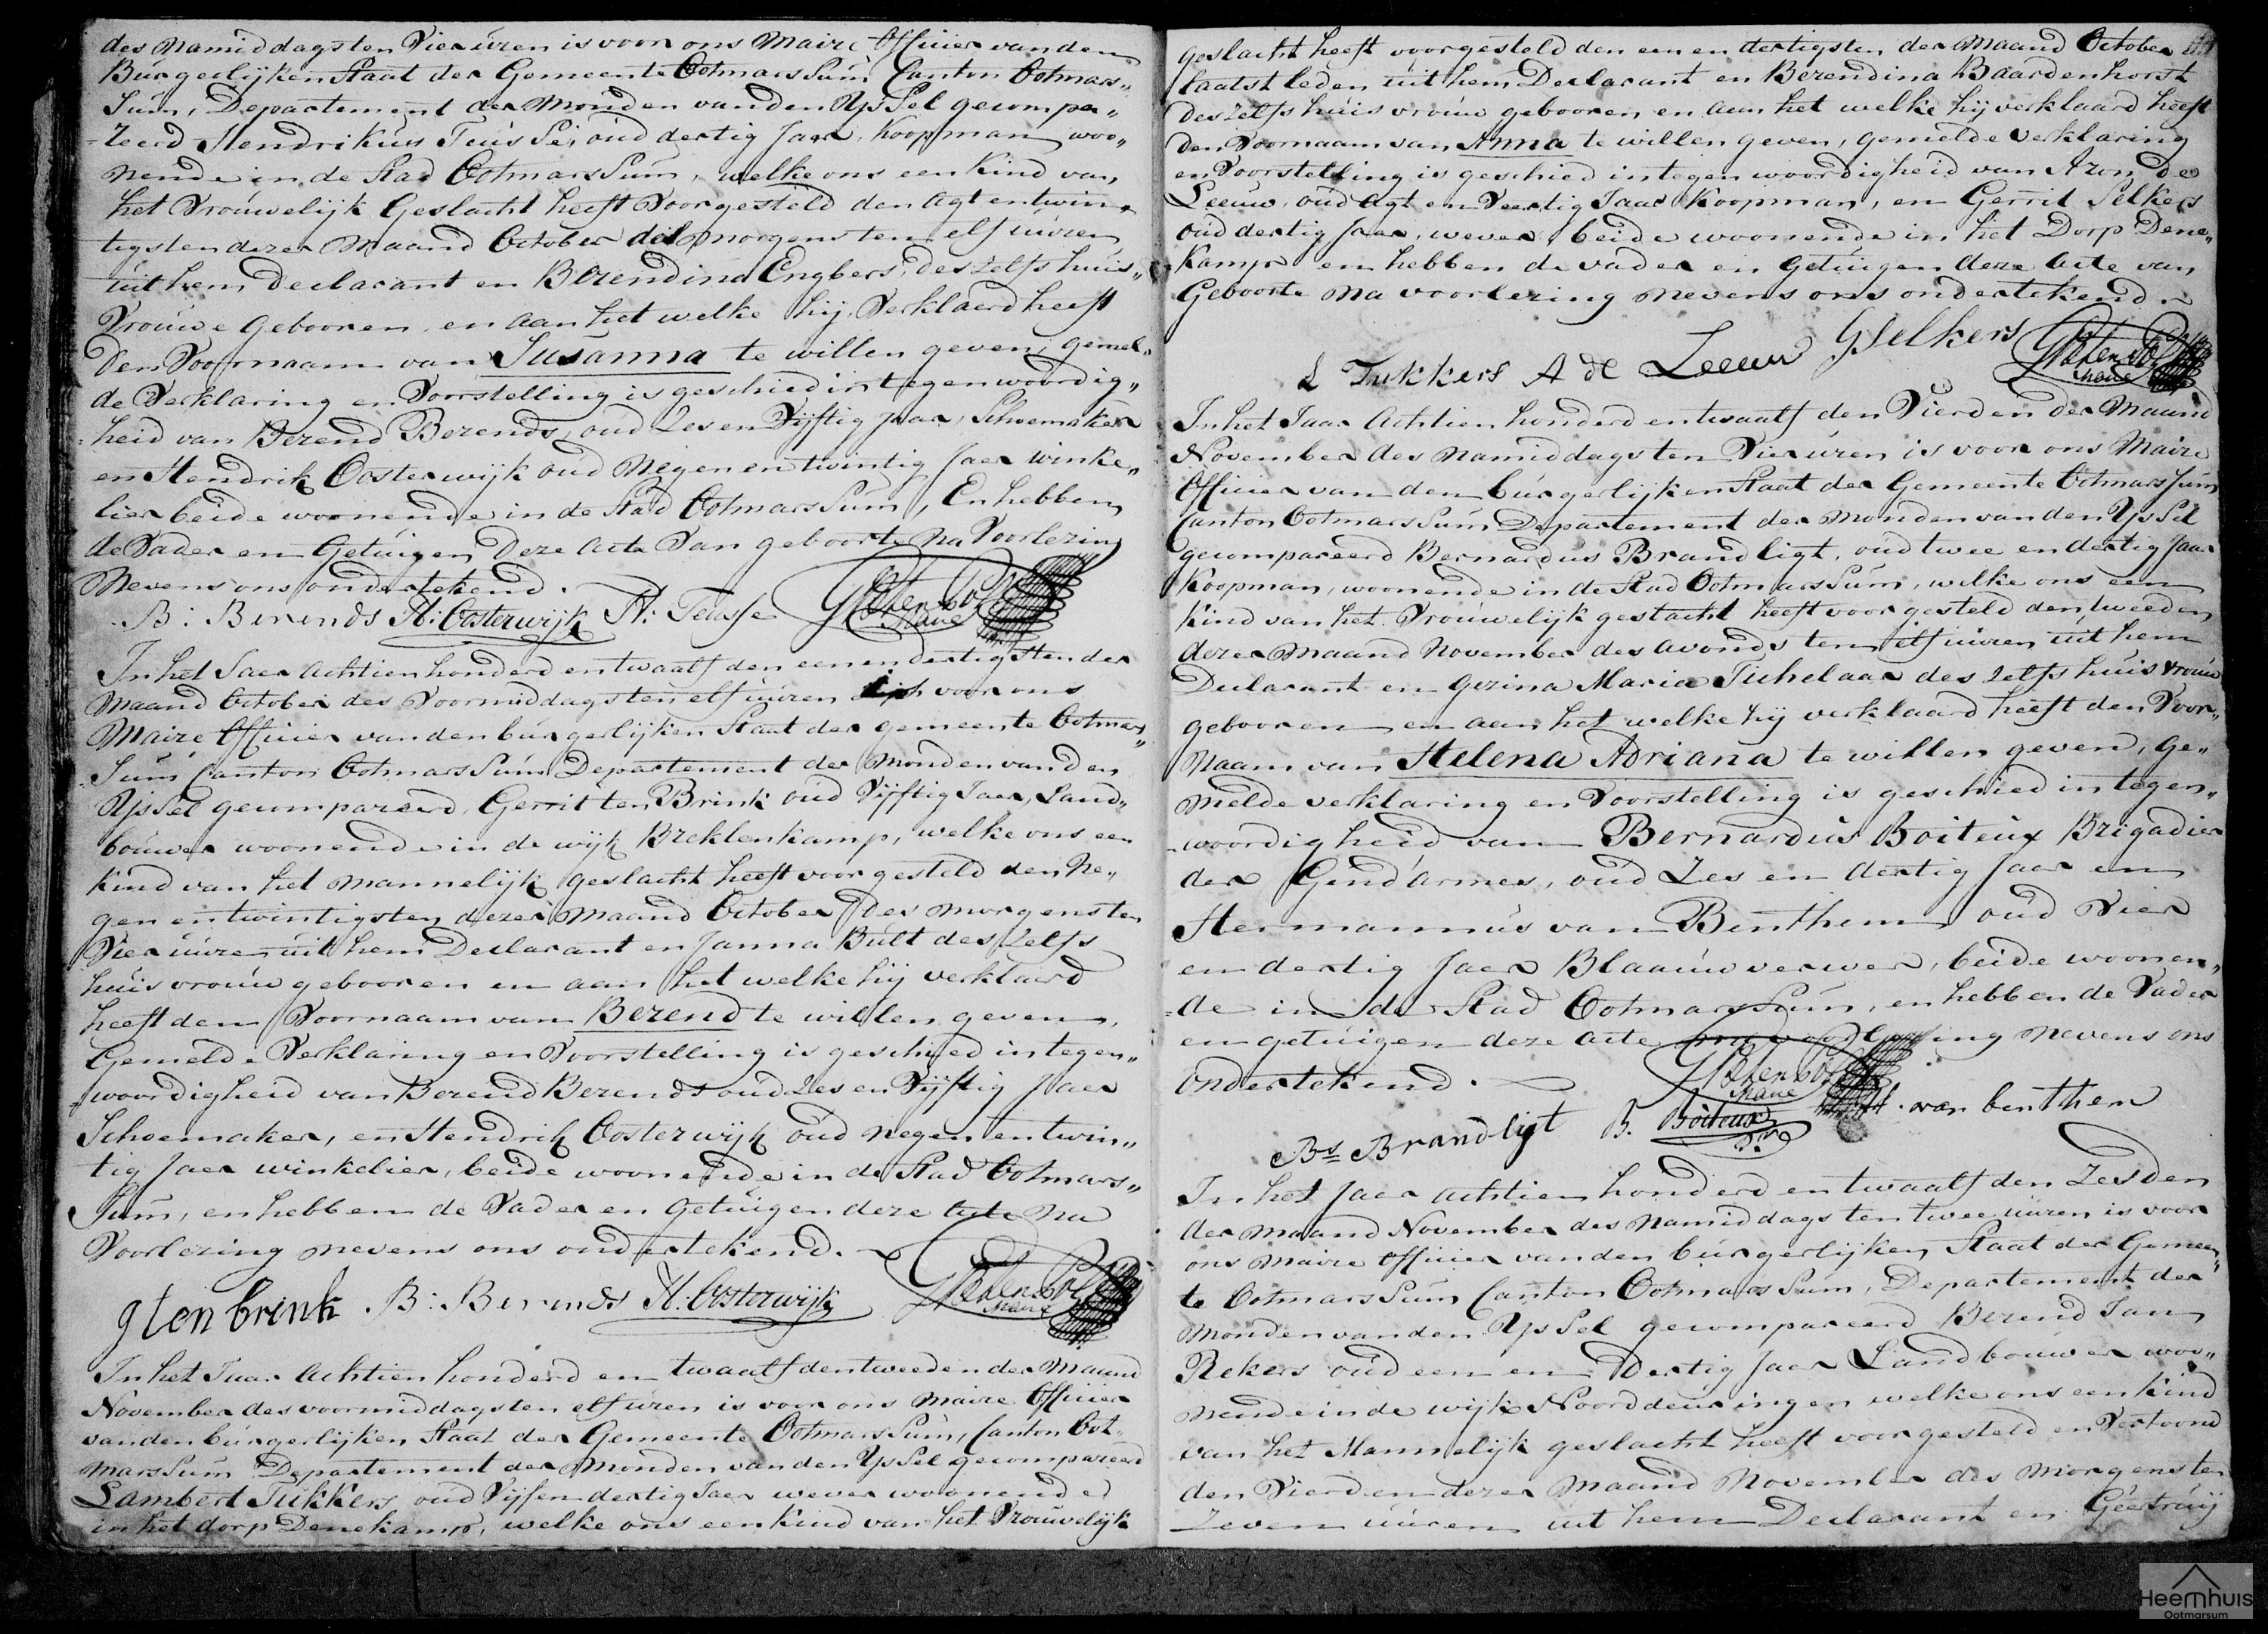 des Namiddags ten Vier uren is voor ons Maire Officier van den
Burgerlijken Staat der Gemeente Ootmarssum Canton Ootmars„
sum, Departement der Monden van den Yssel gecompa„
reerd Hendrikus Teussé, oud dertig Jaar, Koopman woo„
nende in de Stad Ootmarssum, welke ons een Kind van
het Vrouwelijk Geslacht heeft Voorgesteld den agt en twin„
tigsten dezer Maand October des morgens ten elf uuren
uit hem Declarant en Berendina Engbers, deszelfs huis„
Vrouwe gebooren, en aan het welke hij Verklaerd heeft
den Voornaam van Susanna te willen geven, gemel„
de Verklaring en Voorstelling is geschied in tegenwoordig„
heid van Berend Berends, oud Zes en Vijftig Jaar, Schoemaker
en Hendrik Oosterwijk oud Negen en twintig Jaer winke„
lier beide woonende in de Stad Ootmarssum, En hebben
de Vader en Getuigen Deze Acte Van geboorte Na Voorlezing
Nevens ons ondertekend.
B: Berends H: Oosterwijk H: Teusse
Maire
In het Jaer Achtien honderd en twaalf den een en dertigsten der
Maand October des Voormiddags ten elf uuren is voor ons
Maire Officier van den burgerlijken Staat der gemeente Ootmars„
sum Canton Ootmarssum Departement der Monden van den
Yssel gecompareerd, Gerrit ten Brink oud Vijftig Jaer, Land„
bouwer woonende in de wijk Breklenkamp, welke ons een
kind van het Mannelijk geslacht heeft voorgesteld den Ne„
gen en twintigsten dezer Maand October des morgens ten
Vier uuren uit hem Declarant en Janna Bult des Zelfs
huisvrouw gebooren en aan het welke hij verklaerd
heeft den Voornaam van Berend te willen geven,
Gemelde Verklaring en Voorstelling is geschied in tegen„
woordigheid van Berend Berends oud Zes en Vijftig Jaer
Schoemaker, en Hendrik Oosterwijk oud negen en twin„
tig Jaer winkelier, beide woonende in de Stad Ootmars„
sum, en hebben de Vader en Getuigen deze Acte Na
Voorlezing nevens ons ondertekend.
g ten brink B: Berends H: Oosterwijk
Maire
In het Jaar Achtien honderd en twaalf den tweeden der Maand
November des voormiddags ten elf uren is voor ons Maire Officier
van den burgerlijken Staat der Gemeente Ootmarssum, Canton Oot„
marssum Departement der Monden van den Yssel gecompareerd
Lambert Tukkers oud Vijf en dertig Jaer wever woonende
in het dorp Denekamp, welke ons een kind van het Vrouwelijk
geslacht heeft voorgesteld den een en dertigsten der Maand October
laatstleden uit hem Declarant en Berendina Baardenhorst
deszelfs huisvrouw gebooren en aan het welke hij verklaard heeft
den Voornaam van Anna te willen geven, gemelde verklaring
en Voorstelling is geschied in tegenwoordigheid van Aron de
Leeuw, oud Agt en Veertig Jaar Koopman, en Gerrit Selkers
oud dertig Jaar, wever, beide woonende in het Dorp Dene„
kamp en hebben de vader en getuigen deze Acte van
Geboorte na voorlezing nevens ons ondertekend
L Tukkers A de Leeuw G Selkers
Maire
In het Jaar Achtien honderd en twaalf den Vierden der Maand
November des Namiddags ten Vier uren is voor ons Maire
Officier van den burgerlijken Staat der Gemeente Ootmarssum
Canton Ootmarssum Departement der Monden van den Yssel
gecompareerd Bernardus Brandligt, oud twee en dertig Jaar
Koopman, woonende in de Stad Ootmarssum, welke ons een
Kind van het Vrouwelijk geslacht heeft voorgesteld den tweeden
dezer Maand November des avonds ten elf uuren uit hem
Declarant en Gezina Maria Tichelaar des zelfs huisvrouw
gebooren en aan het welke hij verklaard heeft den Voor„
Naam van Helena Adriana te willen geven, Ge„
melde verklaring en Voorstelling is geschied in tegen„
woordigheid van Bernardus Boiteux Brigadier
der Gend'armes, oud Zes en dertig Jaer en
Hermannus van Benthem oud Vier
en dertig Jaer Blaauwverwer, beide woonen„
de in de Stad Ootmarssum, en hebben de Vader
en getuigen deze Acte na voorlezing nevens ons
Ondertekend.
Maire
Bs Brandligt B. Boiteux H. van benthem
In het Jaer Achtien honderd en twaalf den Zesden
der Maand November des Namiddags ten twee uuren is voor
ons Maire Officier van den burgerlijken Staat der Gemeen„
te Ootmarssum Canton Ootmarssum, Departement der
Monden van den Yssel gecompareerd Berend Jan
Rekers oud een en Dertig Jaer Landbouwer woo„
nende in de wijk Noorddeuringen welke ons een Kind
van het Mannelijk geslacht heeft voorgesteld en Vertoond
den Vierden dezer Maand November des Morgens ten
Zeven uuren uit hem Declarant en Geertruij
Heemhuis
Ootmarsum